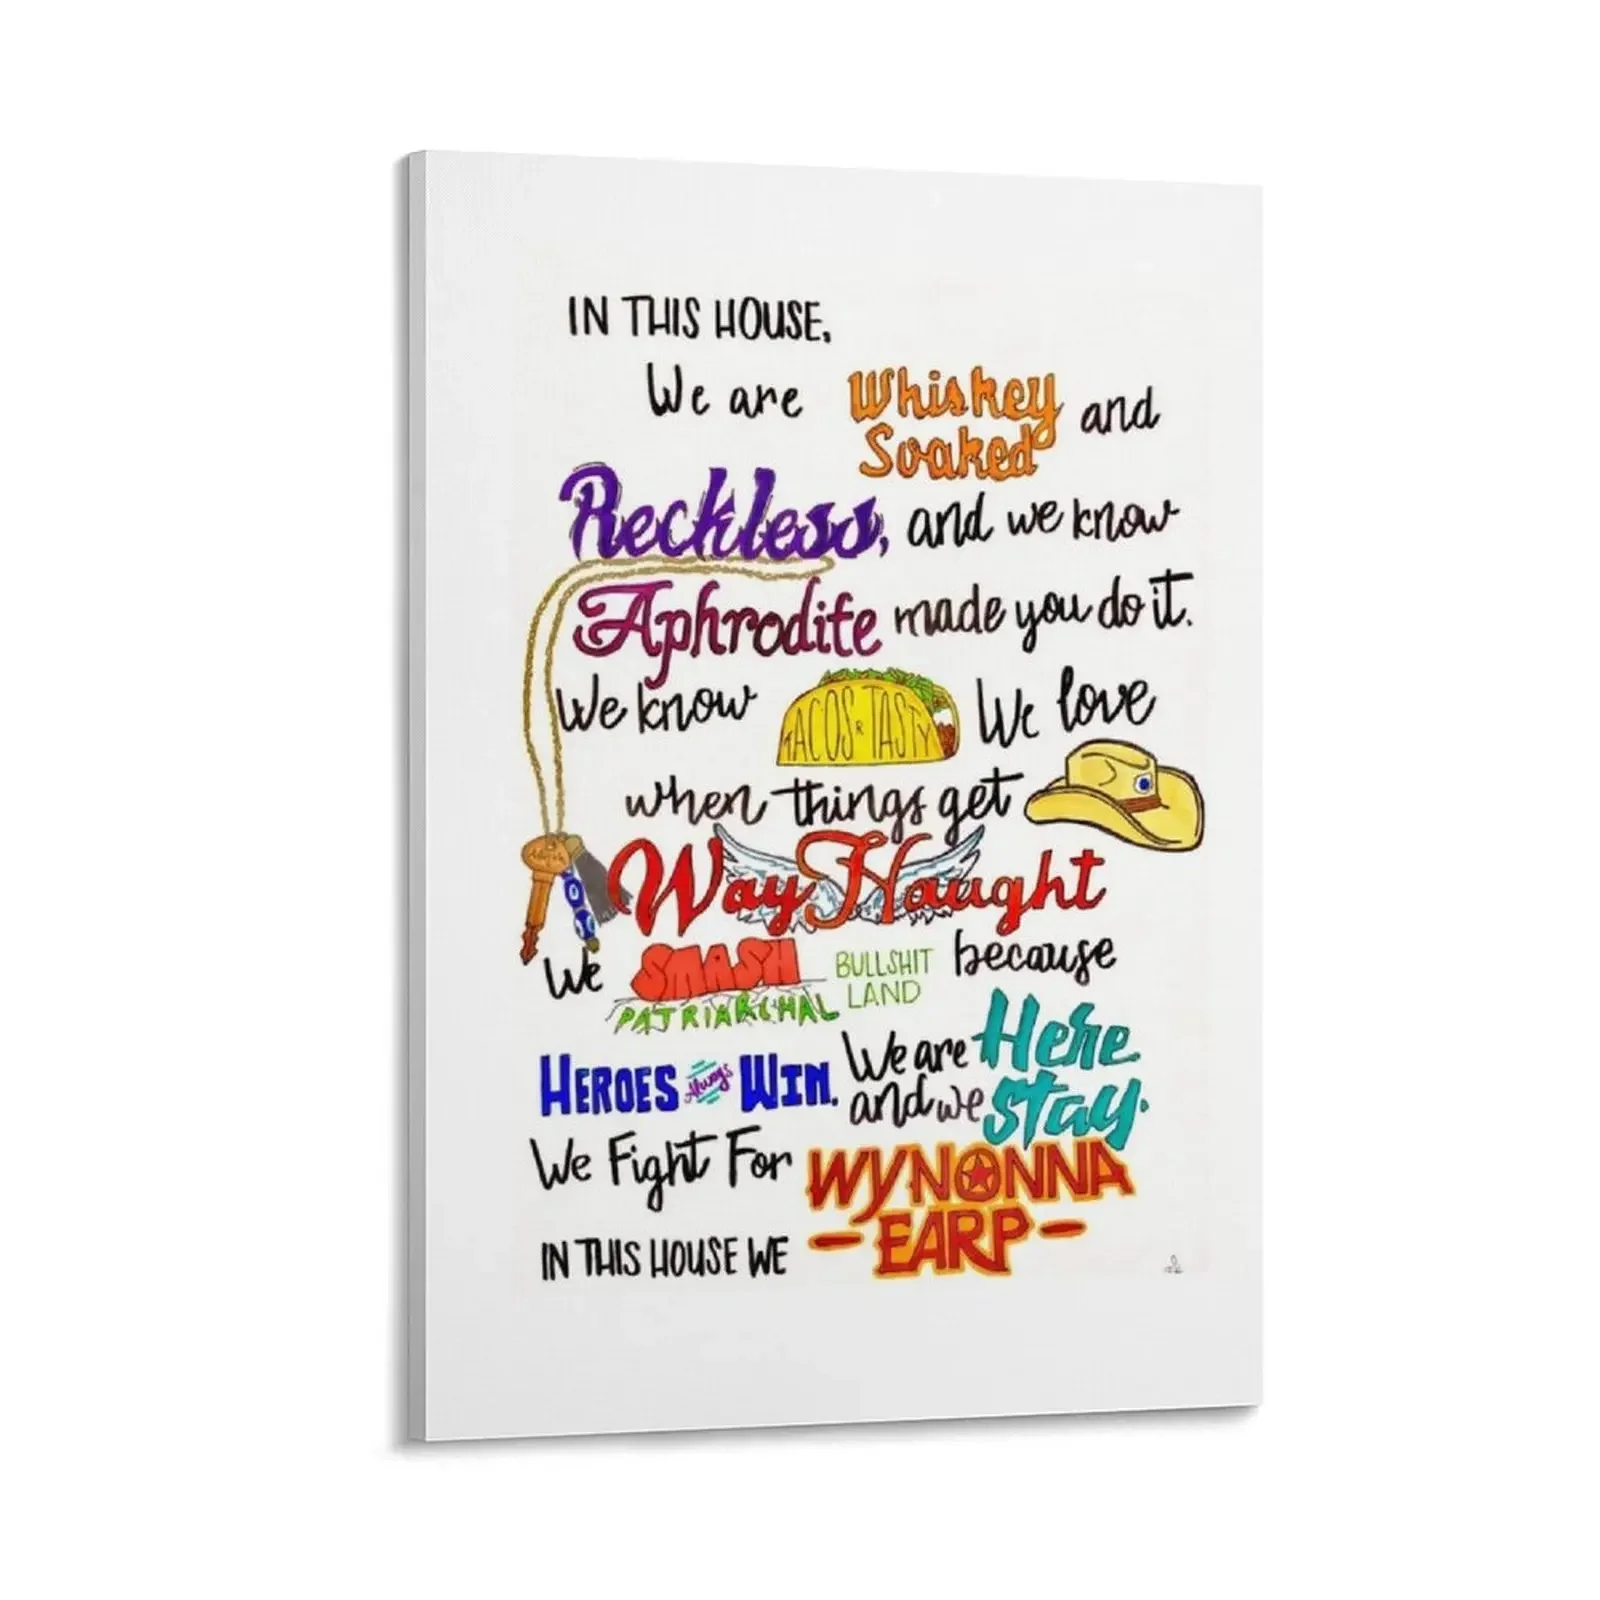 IN THIS HOUSE,
We are Whiskey Soaked and
Reckless, and we know
Aphrodite made you do it.
We know TACOS R TASTY We love
when things get
WayHaught
We SMASH PATRIARCHAL BULLSHIT LAND because
HEROES Always WIN. We are Here and we Stay.
We Fight For WYNONNA
IN THIS HOUSE WE - EARP -